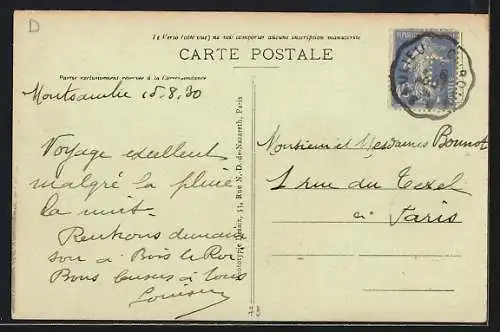 D
Le Verso (côté vue) ne doit comporter aucune inscription manuscrite
CARTE POSTALE
Partie exclusivement réservée à la Correspondance
15.8.30
Voyage excellent
malgré la pluie
la nuit.
Rentrons demain
soir à Bois le Roi
Bons baisers à tous
Louison
Phototypie Baudinière, 53, Rue N.-D. de-Nazareth, Paris
Monsieur et Mesdames Bonnot
1 rue du Texel
à Paris